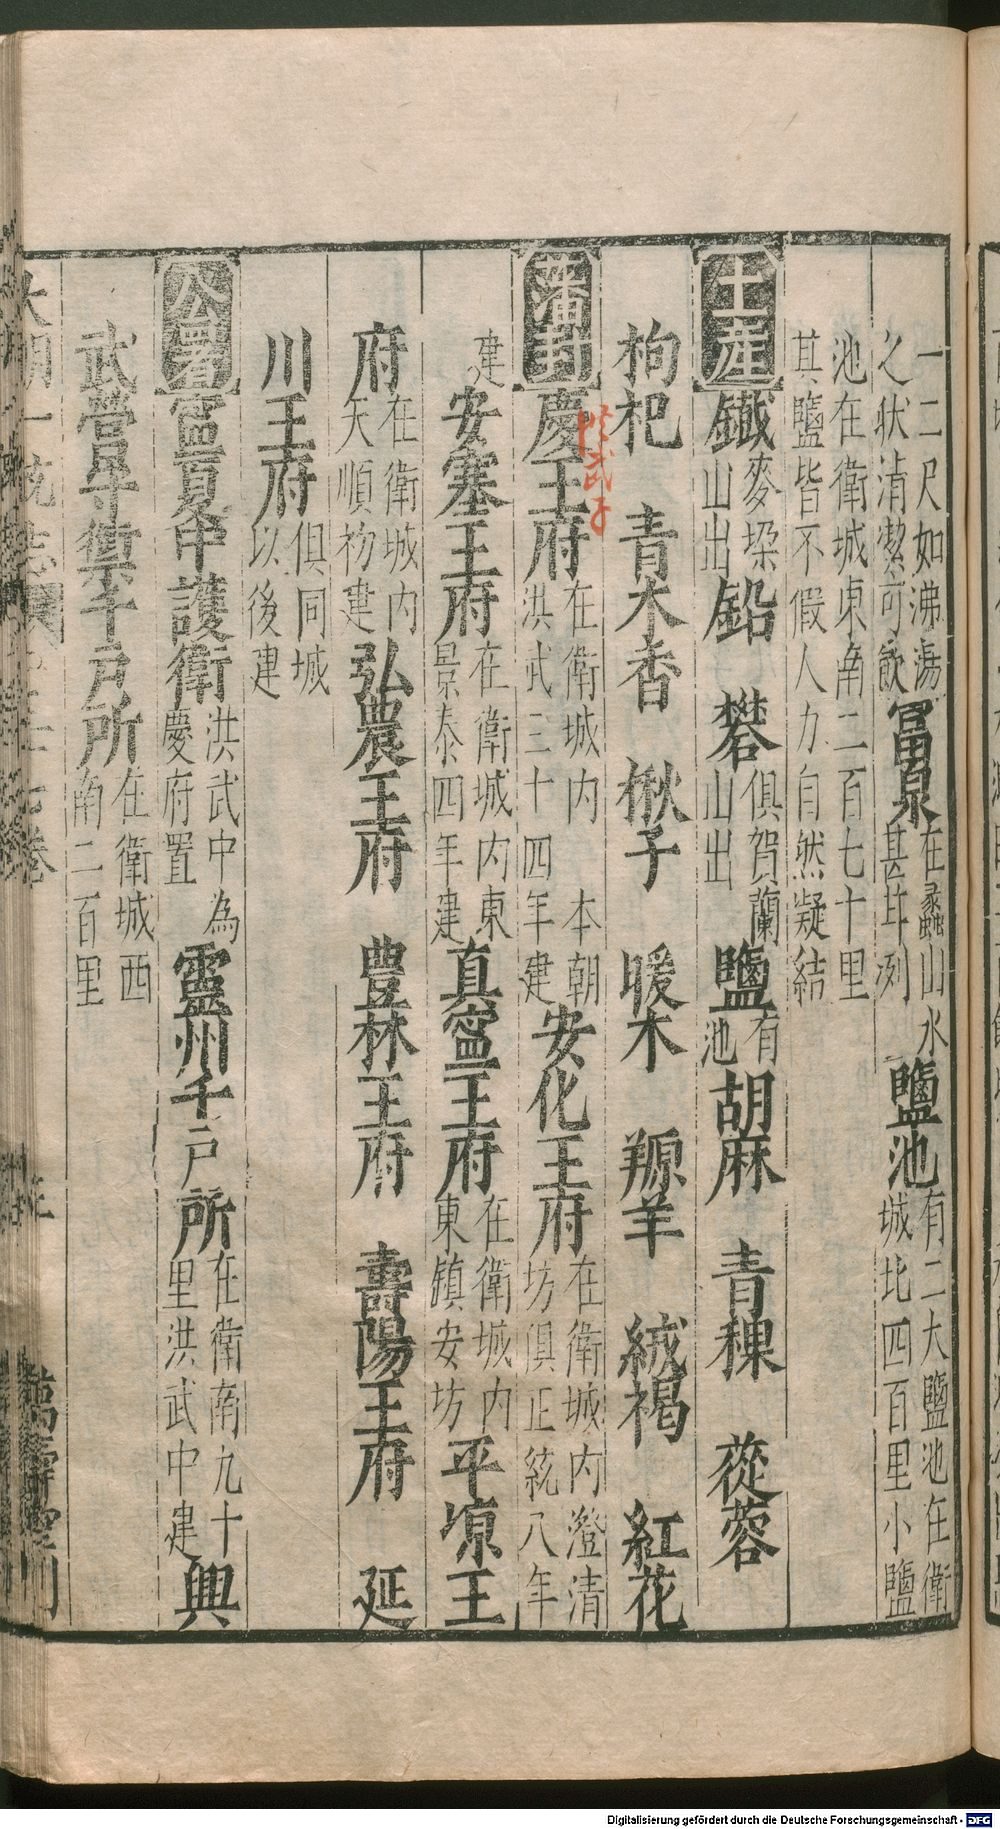 一二尺如沸湯
之狀清潔可飲冨泉在蠡山水
甚甘冽鹽池有二大鹽池在衛
城北四百里小鹽
池在衛城東南二百七十里
其鹽皆不假人力自然凝結
土產鐵麥垜
山出鉛 礬俱賀蘭
山出鹽有
池胡麻 青稞 蓯蓉
枸杞 青木香 楸子 暖木 羱羊 絨褐 紅花
藩封慶王府在衛城内 本朝
洪武三十四年建安化王府在衛城内澄清
坊俱正統八年
建安塞王府在衛城内東
景泰四年建真寧王府在衛城内
東鎮安坊平凉王
府在衛城内
天順初建弘農王府 豊林王府 壽陽王府 延
川王府俱同城
以後建
公署寧夏中護衛洪武中為
慶府置靈州千戸所在衛南九十
里洪武中建興
武營守禦千戸所在衛城西
南二百里
大明一統志
卷
三
萬壽堂刊
洪武子
Digitalisierung gefördert durch die Deutsche Forschungsgemeinschaft - DFG